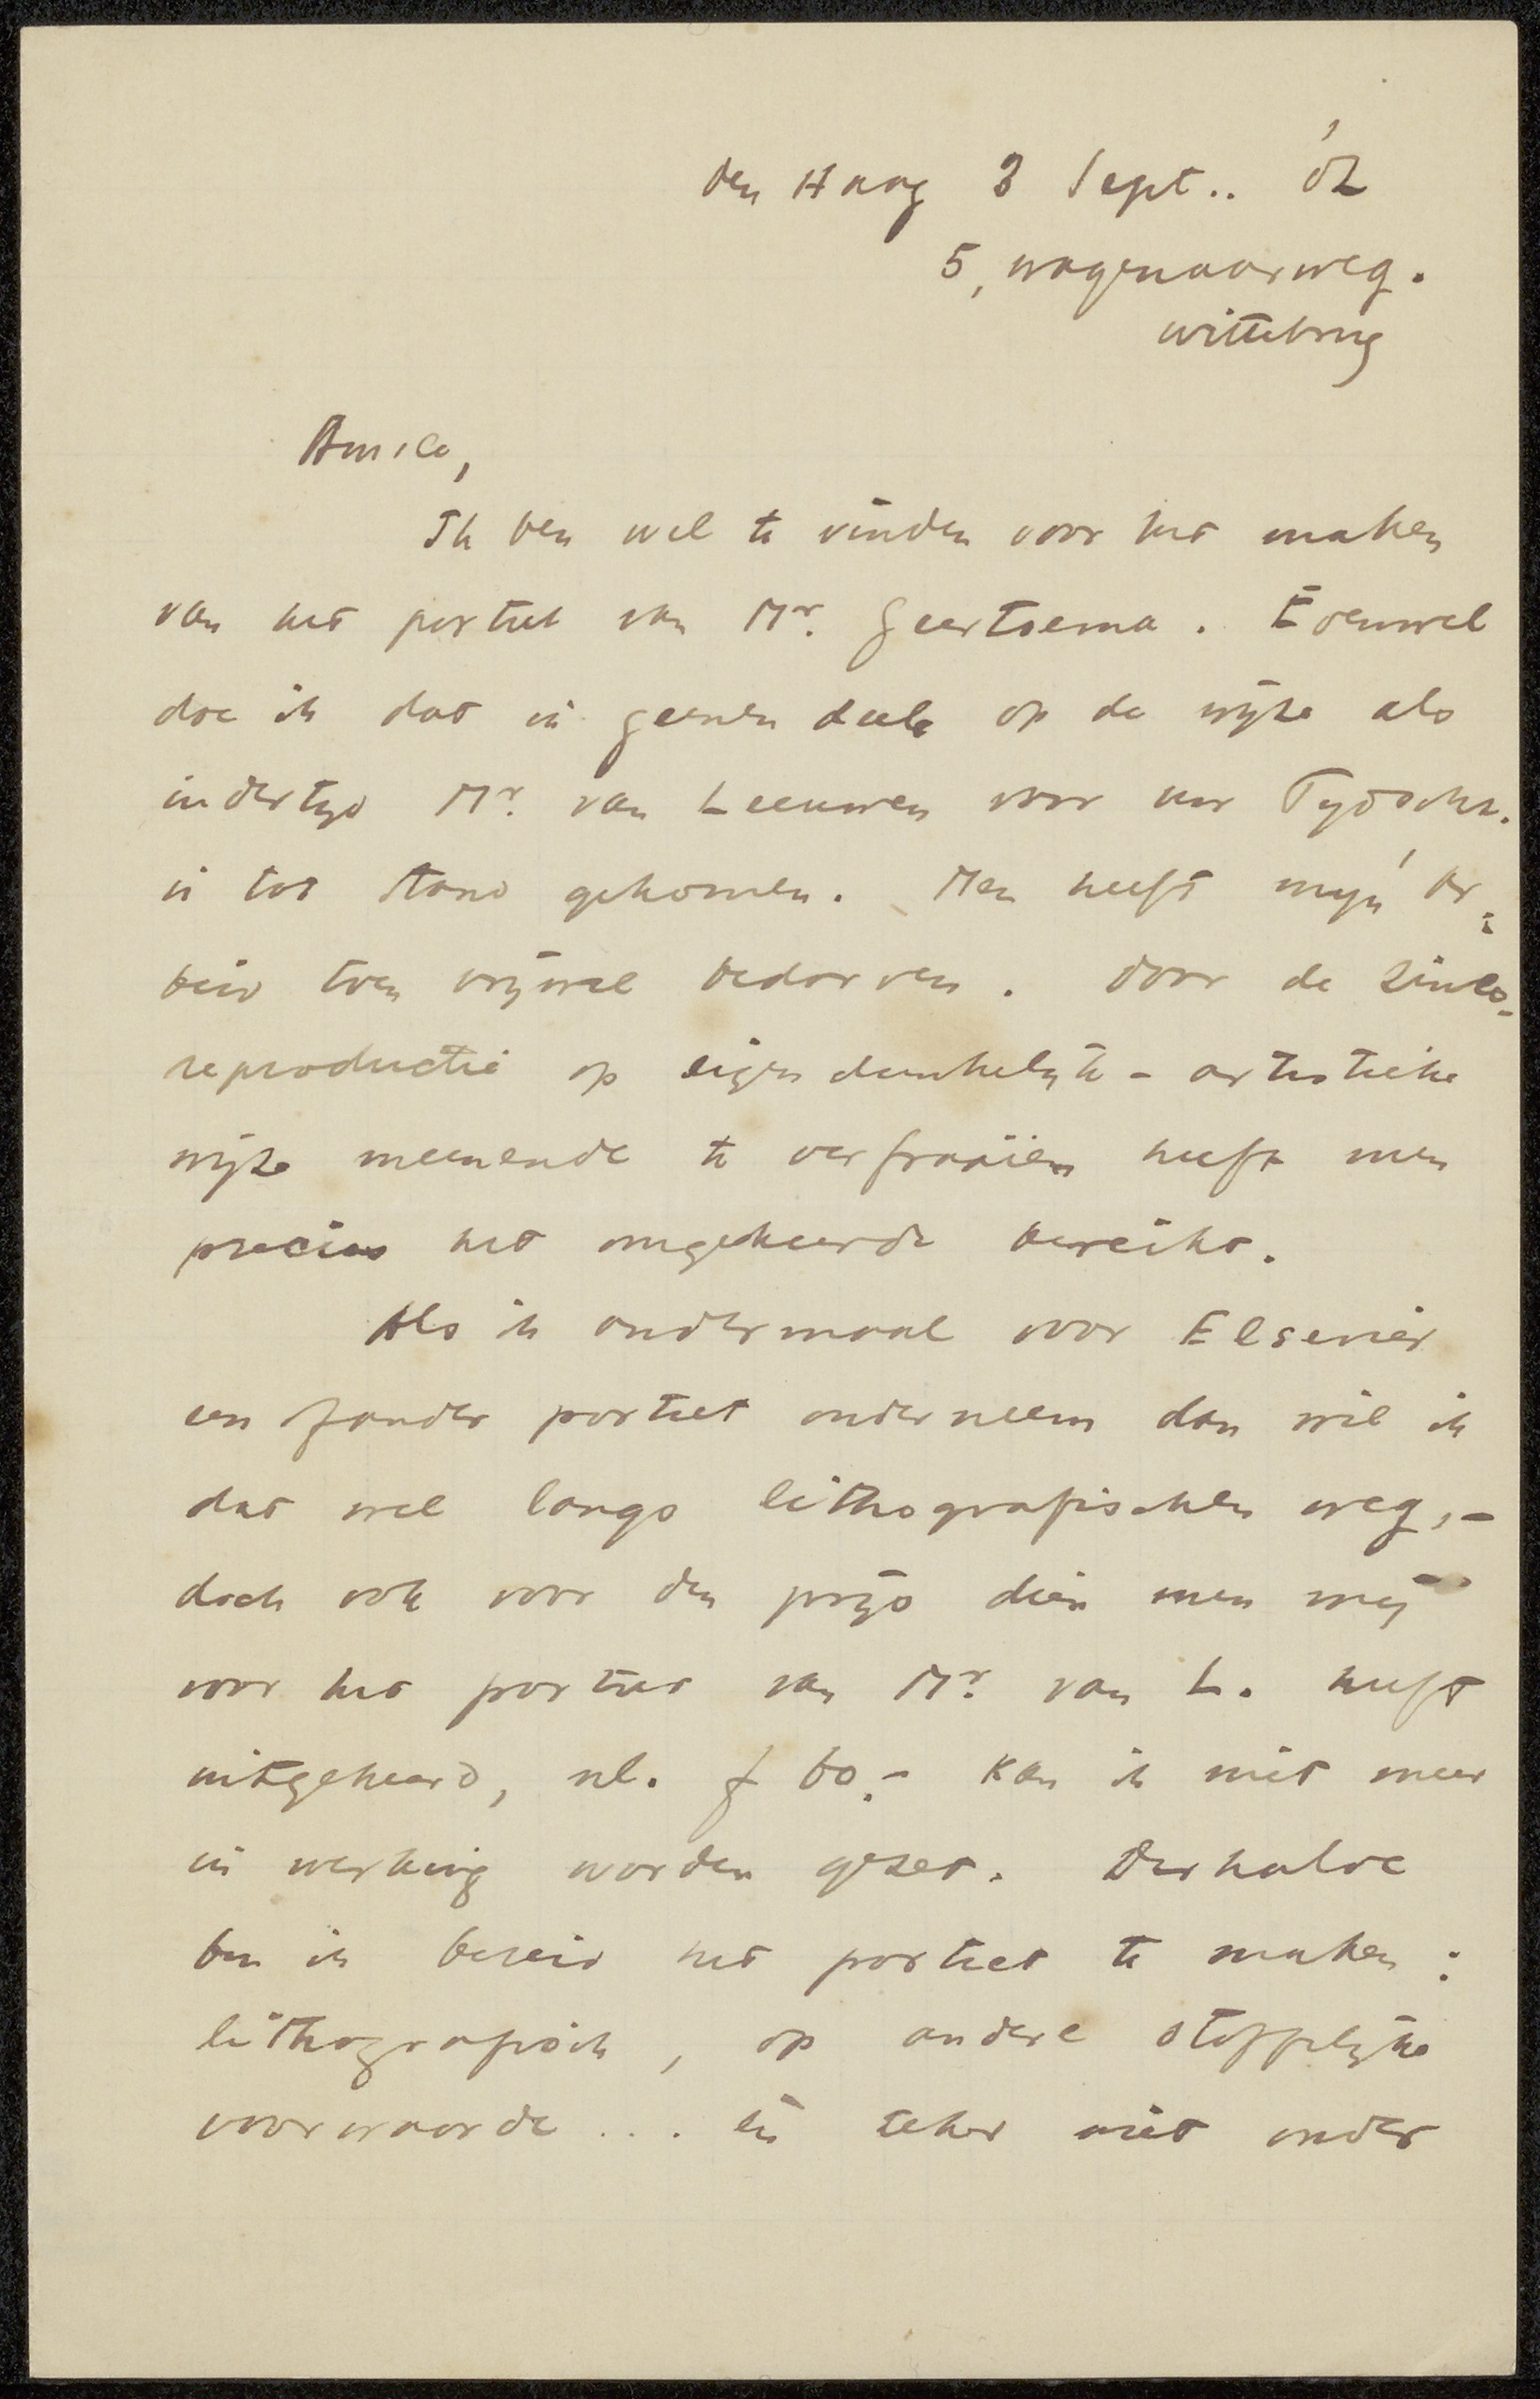 den Haag 3 Sept.. '02
5, wagenaarweg.
wittebrug
Amice,
Ik ben wel te vinden voor het maken
van het portret van Mr. Geertsema. Evenwel
doe ik dat in geenen deele op de wijze als
indertijd Mr. van Leeuwen voor uw Tijdschr.
is tot stand gekomen. Men heeft mijn ar-
beid toen vrijwel bedorven. Door de zinco-
reproductie op eigendunkelijk - artistieke
wijze meenende te verfraaiien heeft men
precies het omgekeerde bereikt.
Als ik andermaal voor Elsevier
een portret onderneem dan wil ik
dat wel langs lithografischen weg, -
doch ook voor den prijs dien men mij
voor het portret van Mr. van L. heeft
uitgekeerd, nl. f 60.- kan ik niet meer
in werking worden gezet. Derhalve
ben ik bereid het portret te maken:
lithografisch, op andere stoffelijke
voorwaarde ... en zeker niet onder